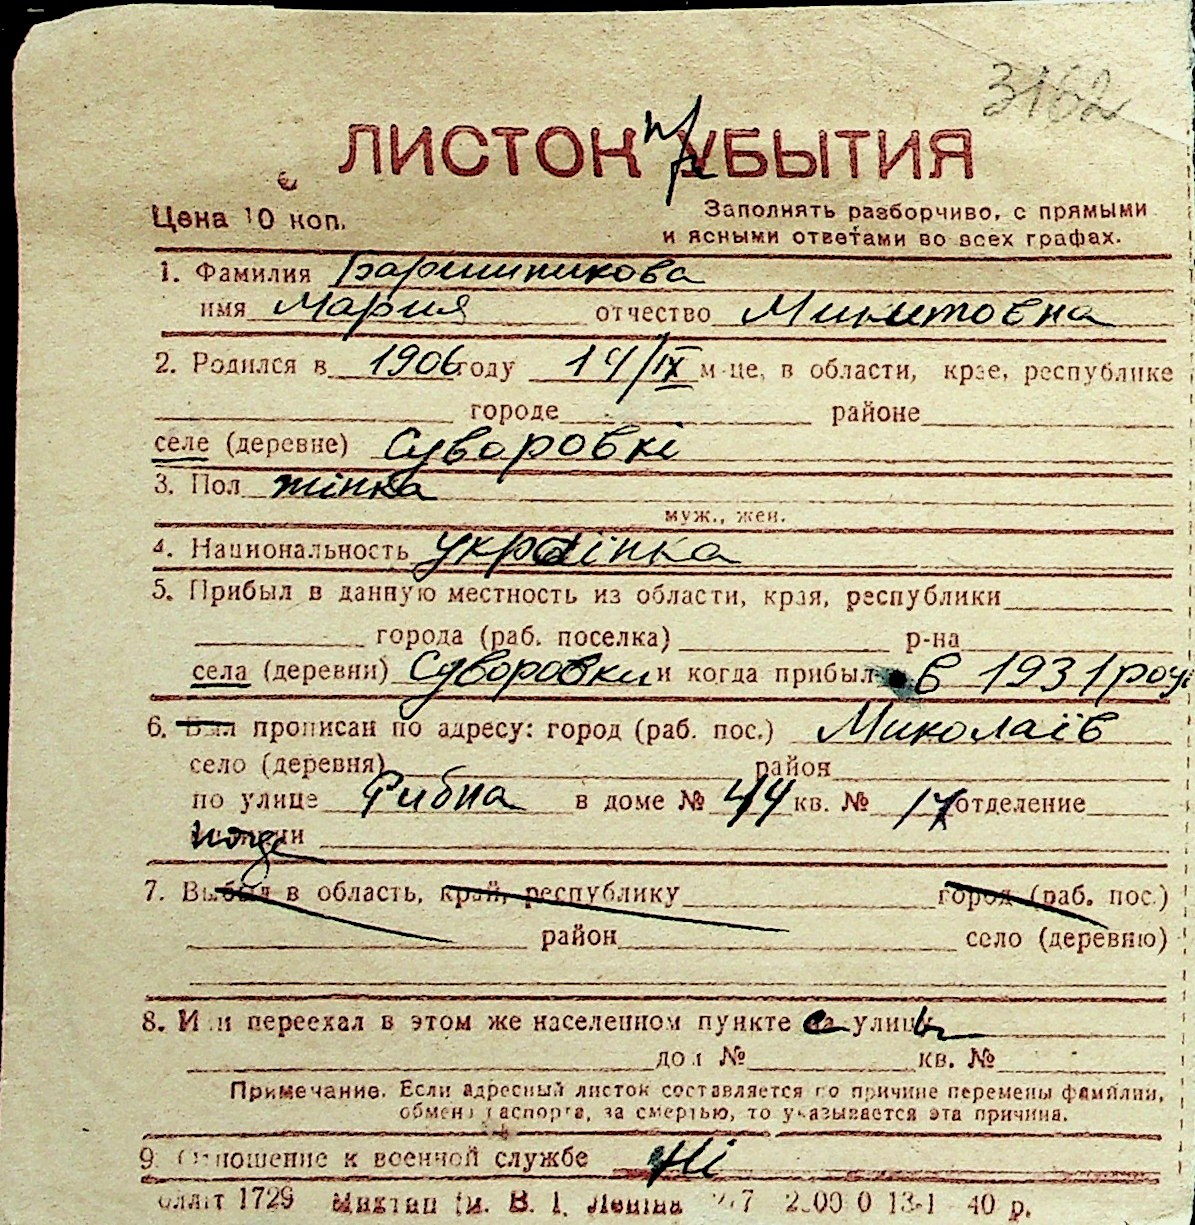 3162
ЛИСТОК УБЫТИЯ
Цена 10 коп.
Заполнять разборчиво, с прямыми
и ясными ответами во всех графах.
1. Фамилия Баришникова
имя Мария отчество Микитовна
2. Родился в 1906 году 14/IX м-це, в области, крае, республике
городе районе
селе (деревне) Суворовкі
3. Пол жінка
муж., жен.
4. Национальность українка
5. Прибыл в данную местность из области, края, республики
города (раб. поселка) р-на
села (деревни) Суворовки и когда прибыл в 1931 роу
6. Был прописан по адресу: город (раб. пос.) Миколаїв
село (деревня) район
по улице Рибна в доме № 44 кв. № 14 отделение
7. Выбыл в область, край, республику город (раб. пос.)
район село (деревню)
8. Или переехал в этом же населенном пункте улицы
дом № кв. №
Примечание. Если адресный листок составляется по причине перемены фамилии,
обмена паспорта, за смертью, то указывается эта причина.
9. Отношение к военной службе Ні
1729 В. І. Леніна 13-1 40 р.